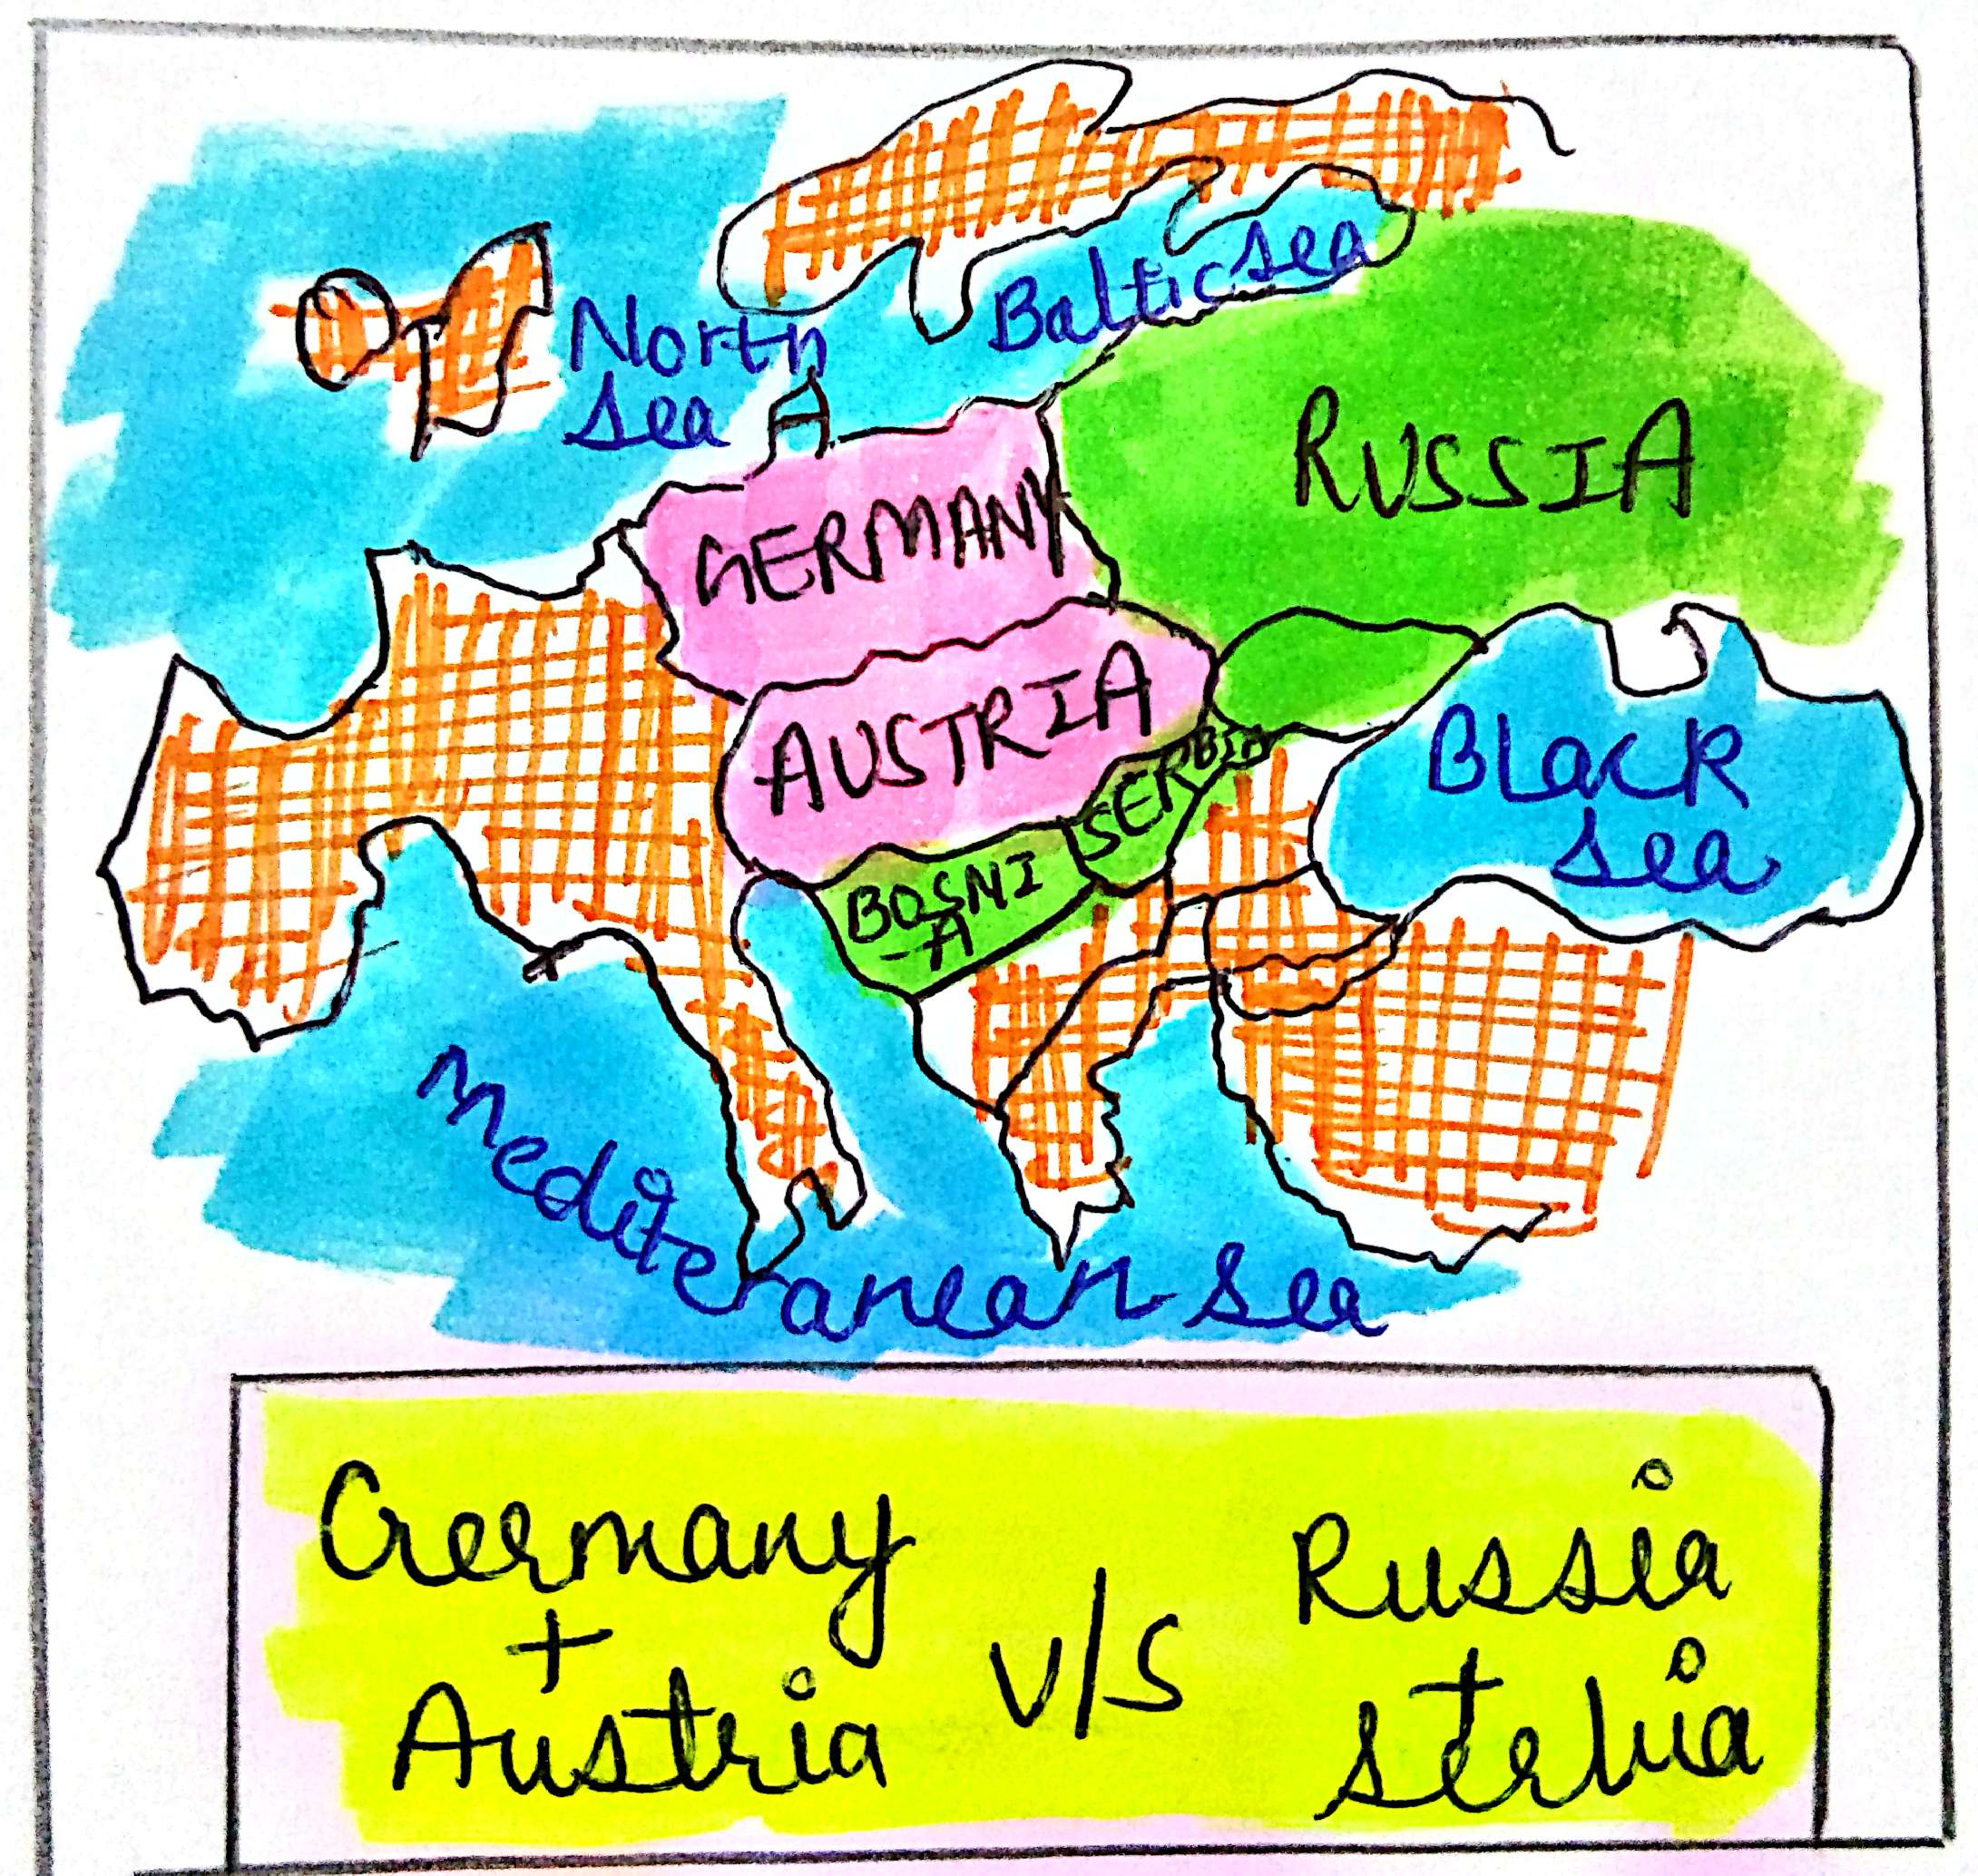 North
Sea
Baltic Sea
RUSSIA
GERMANY
AUSTRIA
SERBIA
BOSNI
-A
Black
Sea
Mediteranean Sea
Germany
+
Austria
V/S
Russia
+
Serbia